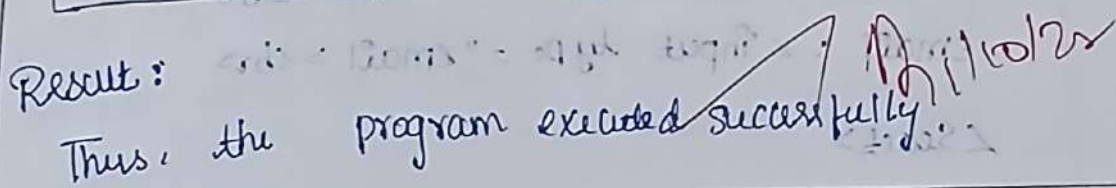 Result:
Thus, the program executed successfully.